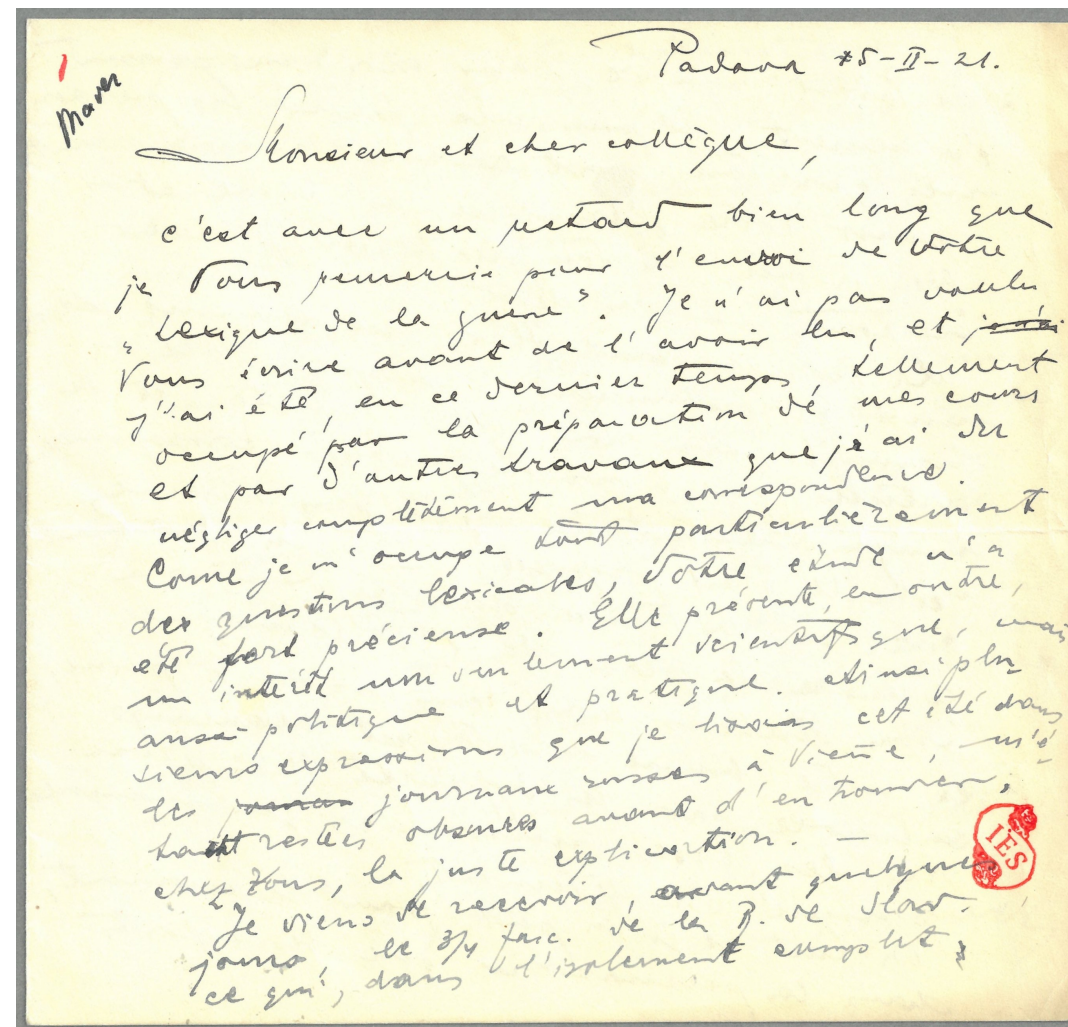 Maver
Padova 25-II-21.
Monsieur et cher collègue,
c'est avec un retard bien long que
je Vous remercie pour l'envoi de Votre
„Lexique de la guerre". Je n'ai pas voulu
Vous écrire avant de l'avoir lu, et
j'ai été, en ce dernier temps, tellement
occupé par la préparation de mes cours
et par d'autres travaux que j'ai du
négliger complètement ma correspondence.
Come je m'occupe tout particulièrement
des questions lexicales, Votre étude m'a
été fort précieuse. Elle présente, en outre,
un intérêt non seulement scientifique, mais
aussi politique et pratique. Ainsi plu-
sieurs expressions que je lisais cet été dans
les journaux russes à Vienne, m'é-
taient restées obscures avant d'en trouver,
chez Vous, la juste explication. —
Je viens de recevoir, avant quelques
jours, le 3/4 fasc. de la R. de Slav.
ce qui, dans l'isolement complet
IES